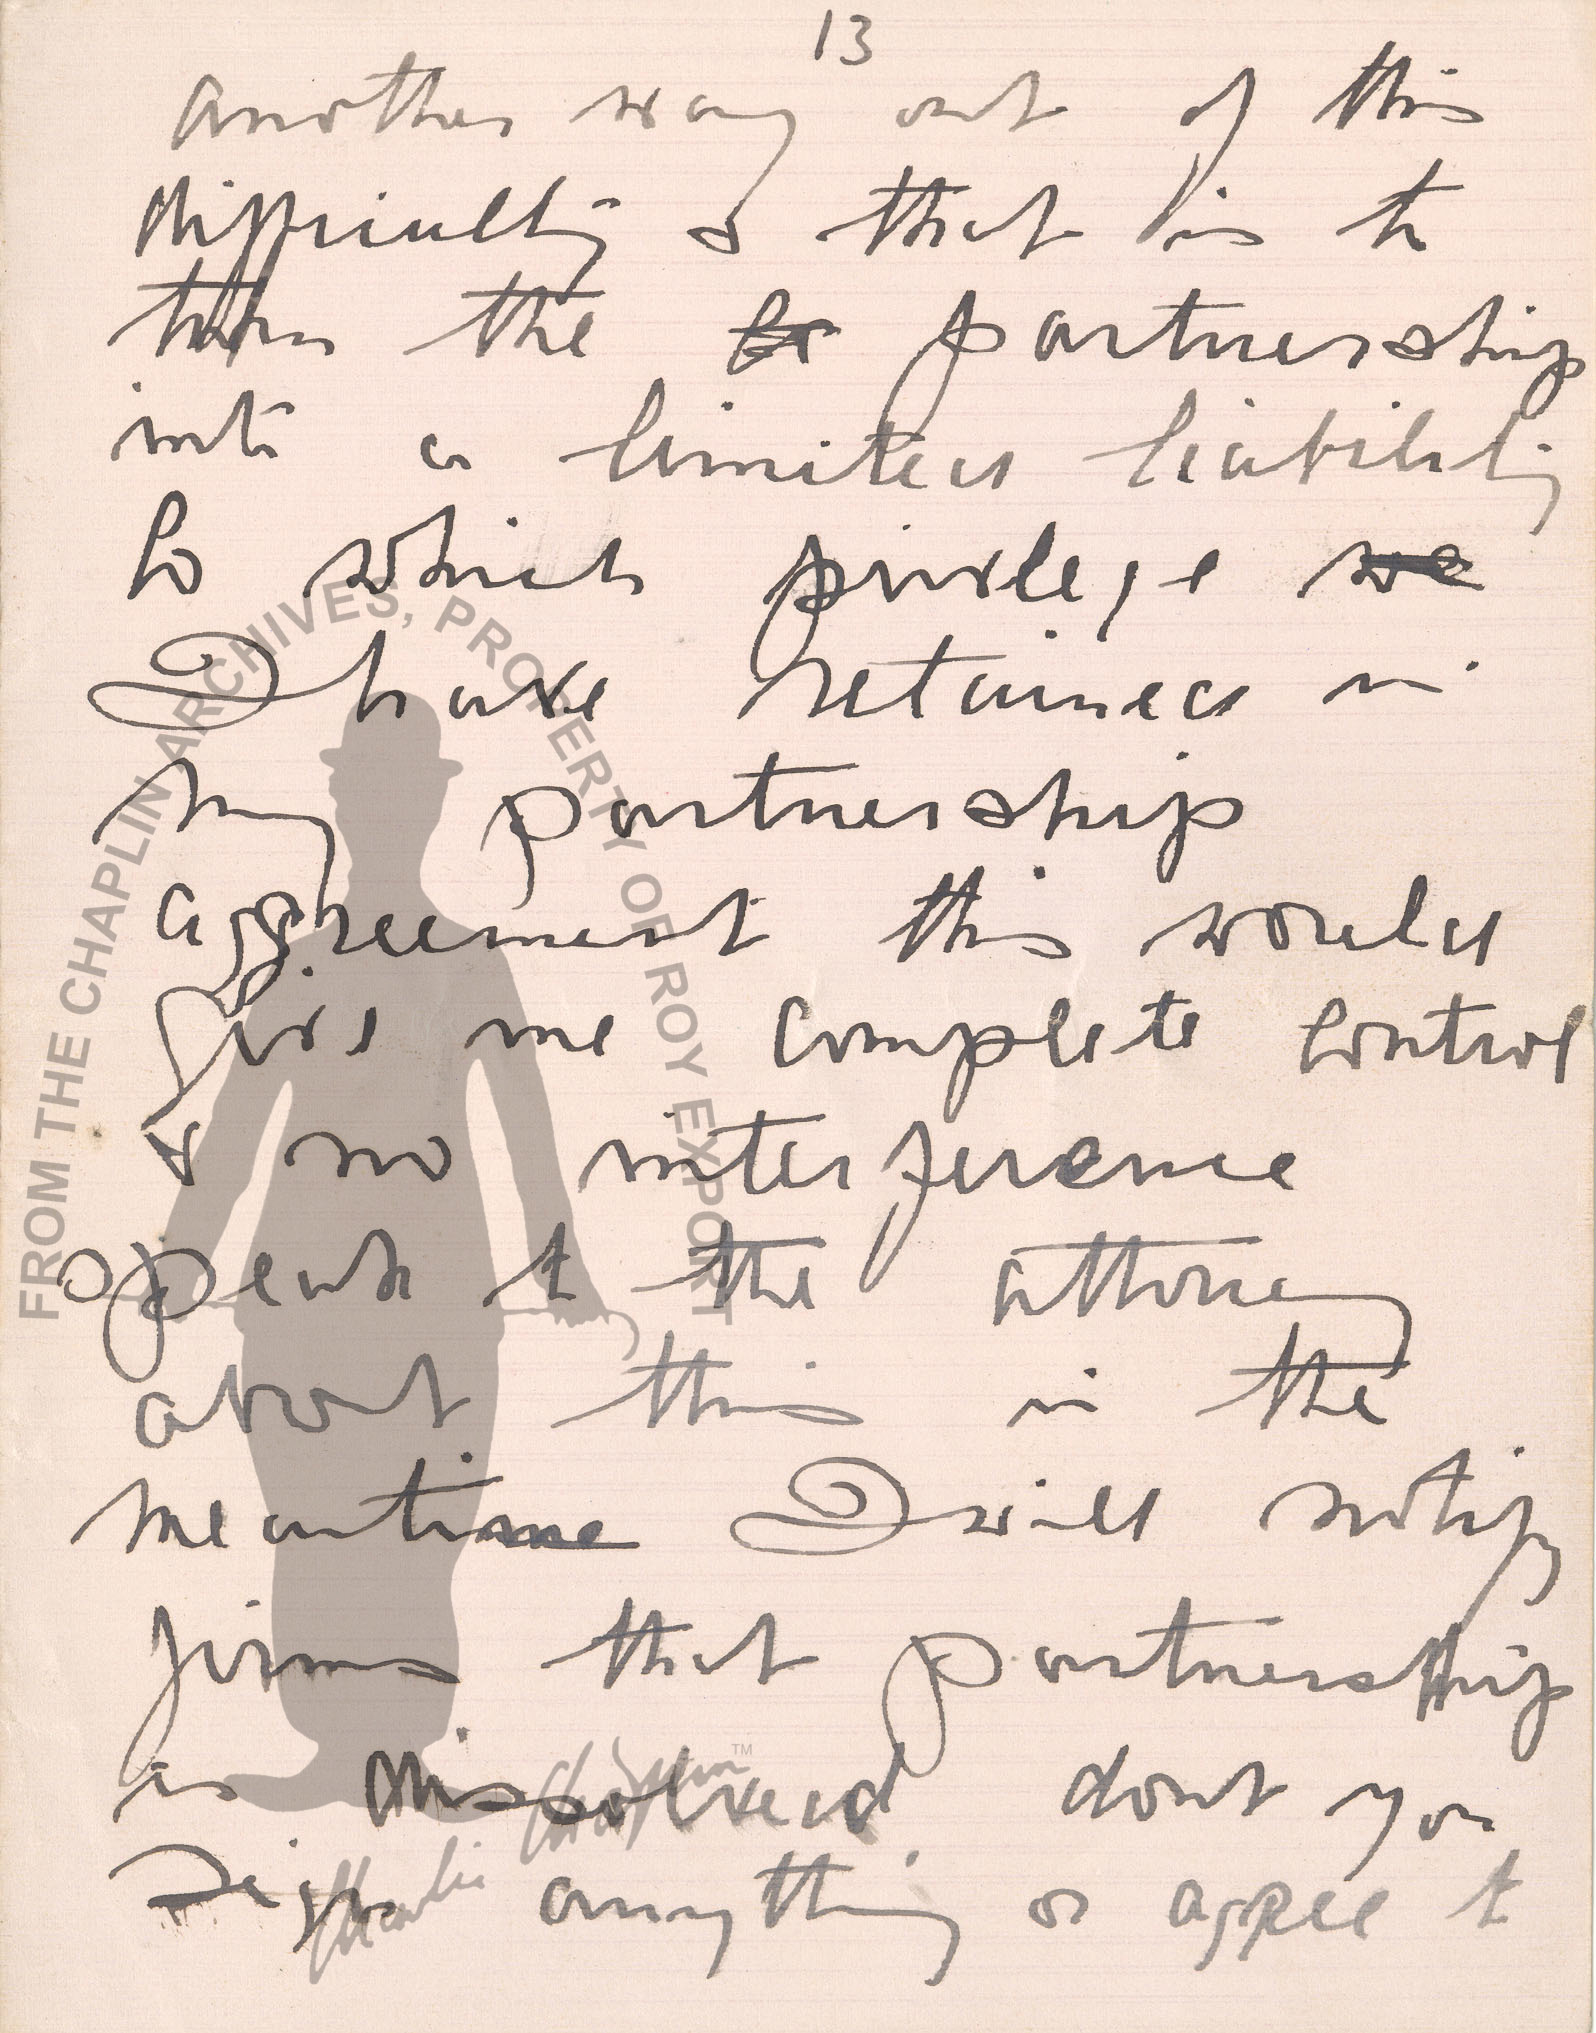 13
another way out of this
difficulty & that is to
turn the Co partnership
into a limited liability
Co which privilege we
I have retained in
my partnership
aggreement this would
give me complete control
& no interference
speak to the attorney
about this in the
meantime I will notify
firms that partnership
is dissolved dont you
sign anything or agree to
FROM THE CHAPLIN ARCHIVES, PROPERTY OF ROY EXPORT
Charlie Chaplin™